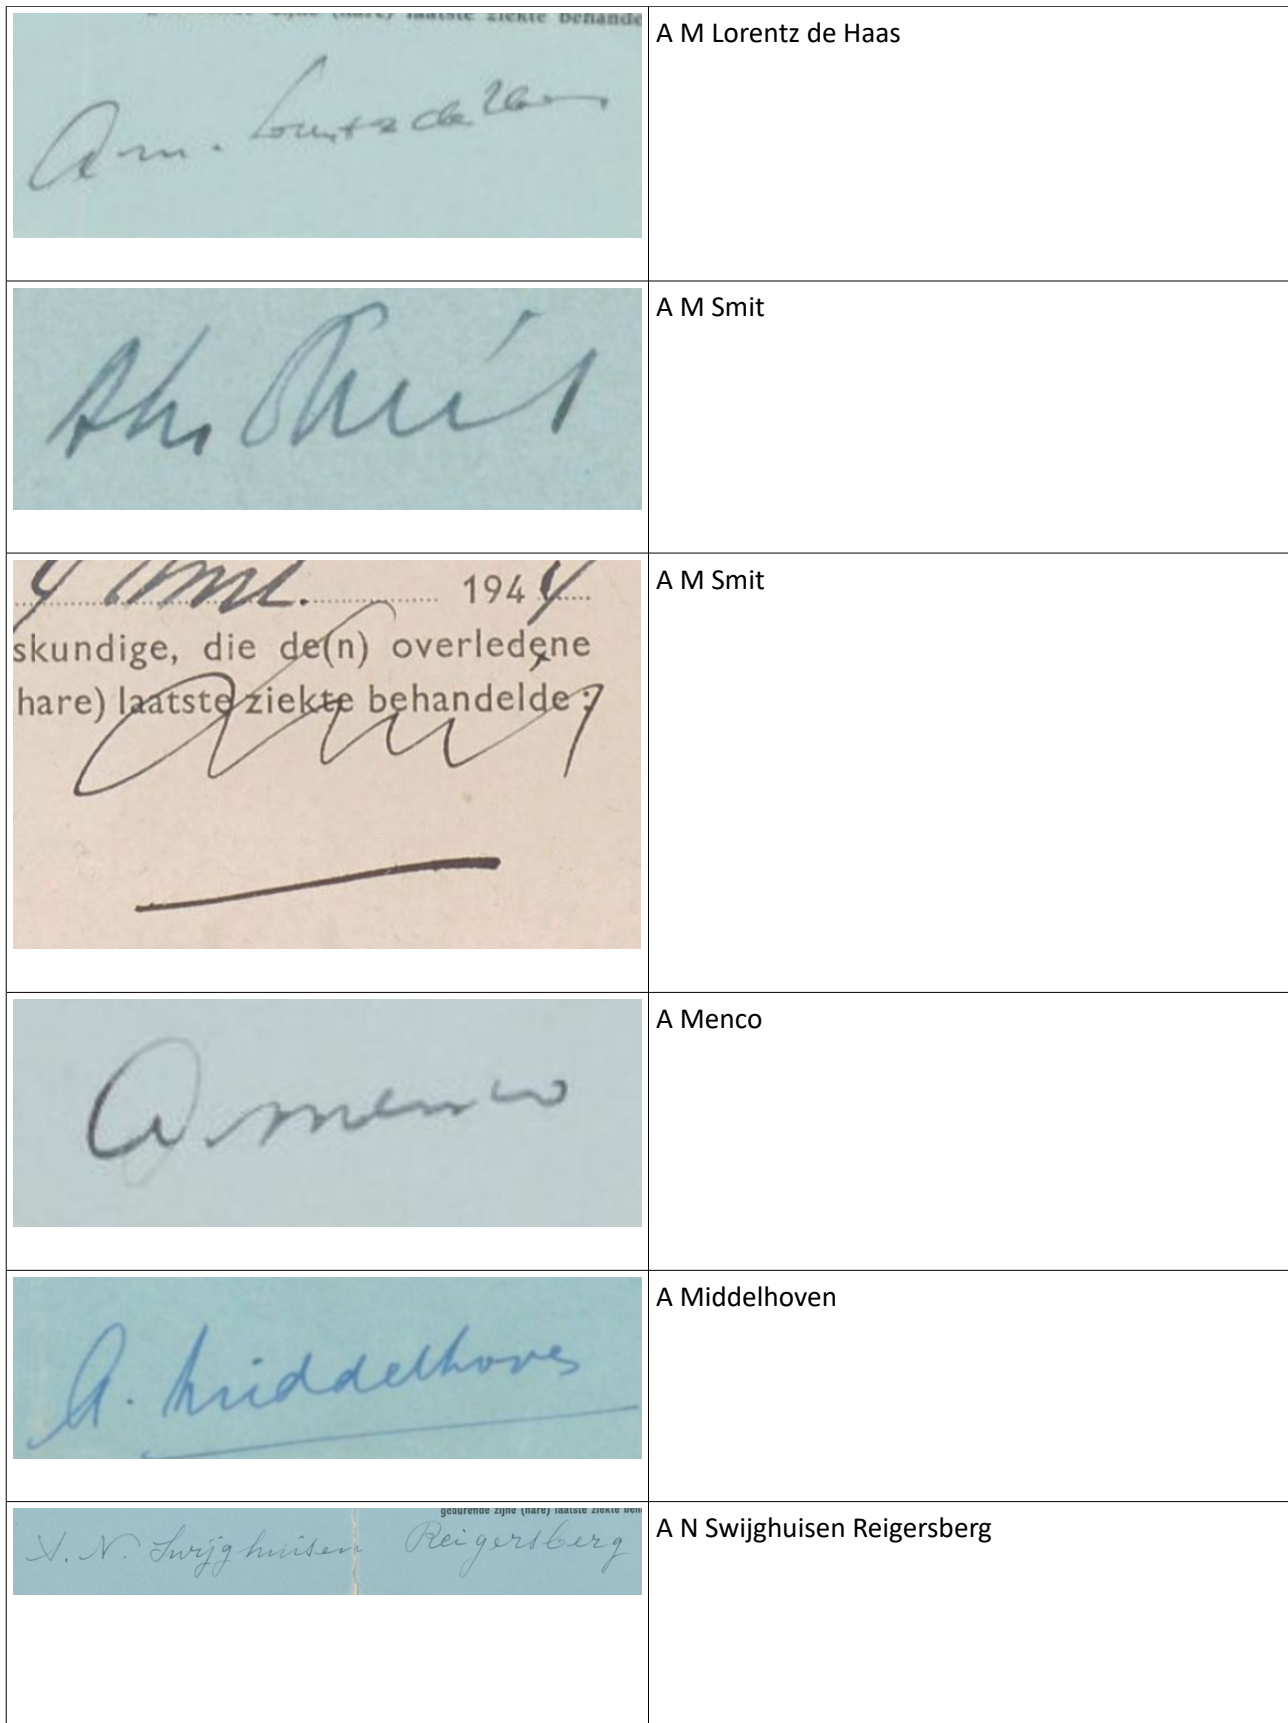 zijne (hare) laatste ziekte behande
A m. Lorentz de Haas
A M Lorentz de Haas
AM Smit
A M Smit
1944
skundige, die de(n) overledene
hare) laatste ziekte behandelde :
Smit
A M Smit
A. Menco
A Menco
A. Middelhoven
A Middelhoven
gedurende zijne (hare) laatste ziekte beh
A. N. Swijghuisen Reigersberg
A N Swijghuisen Reigersberg